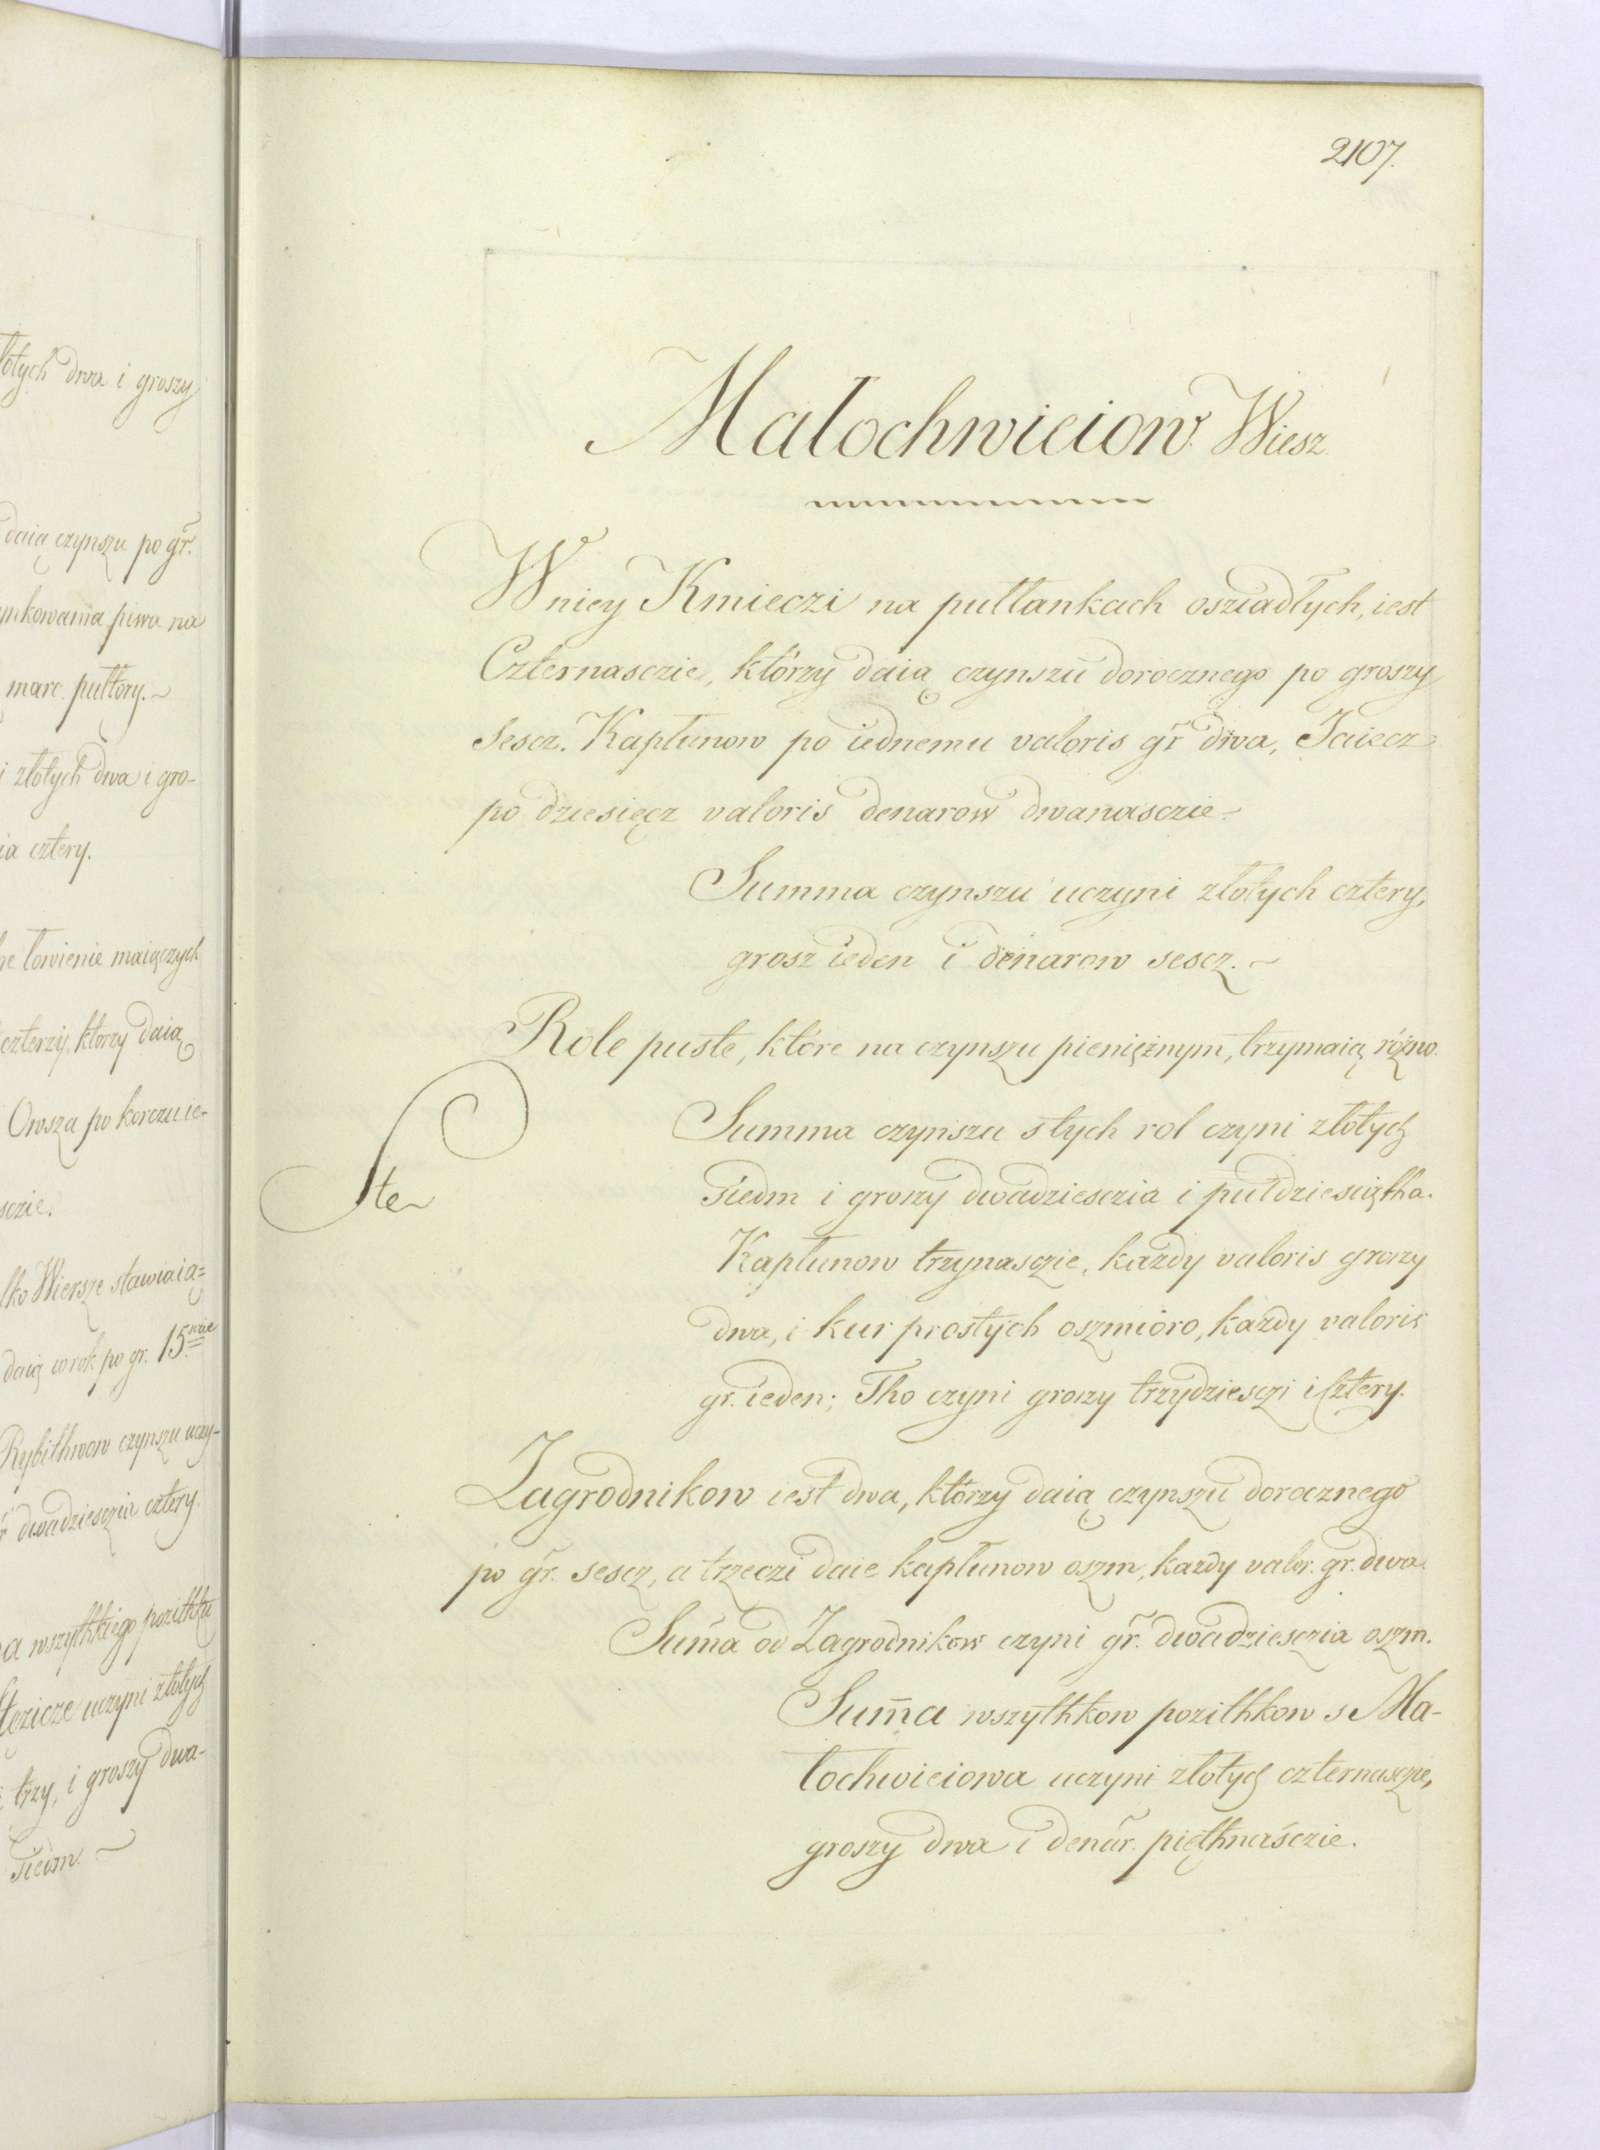 łotych dwa i groszy
daią czynszu po gr̃.
ynkowania piwa na
marc. pułtory.~
i złotych dwa i gro-
ia cztery.
łowienie maiączych
czterzy, ktorzy daią
Owsza po korczu ie-
sczie.
lko Wiersze stawiaią=
daią w rok po gr. 15.
Rybithwow czynszu uczy-
dwadziesczia cztery.
a wszythkiego pozithku
uczyni złotych
trzy, i groszy dwa-
siedm. ~
2107.
Małochwieiow Wiesz.
W niey Kmieczi na pułłankach osziadłych, iest
Czternasczie, którzy daią czynszu dorocznego po groszy
sescz. Kapłunow po iednemu valoris gr̃ dwa, Jaiecz
po dziesięcz valoris denarow dwanasczie.
Summa czynszu uczyni złotych cztery,
grosz ieden i denarow sescz. ~
Role puste, które na czynszu pieniężnym, trzymaią różno.
Ste
Summa czynszu stych rol czyni złotych
siedm i groszy dwadziesczia i pułdziesiątka.
Kapłunow trzynasczie, każdy valoris groszy
dwa, i kur prostych oszmioro, każdy valoris
gr. ieden; Tho czyni groszy trzydziesczi i Cztery.
Zagrodnikow iest dwa, którzy daią czynszu dorocznego
po gr̃. sescz, a trzeczi daie kapłunow oszm, kazdy valor. gr. dwa.
Sum̃a od Zagrodnikow czyni gr̃. dwadziesczia oszm.
Sum̃a wszythkow pozithkow s Ma-
łochwieiowa uczyni złotych czternasczie,
groszy dwa i denar. pięthnaśczie.